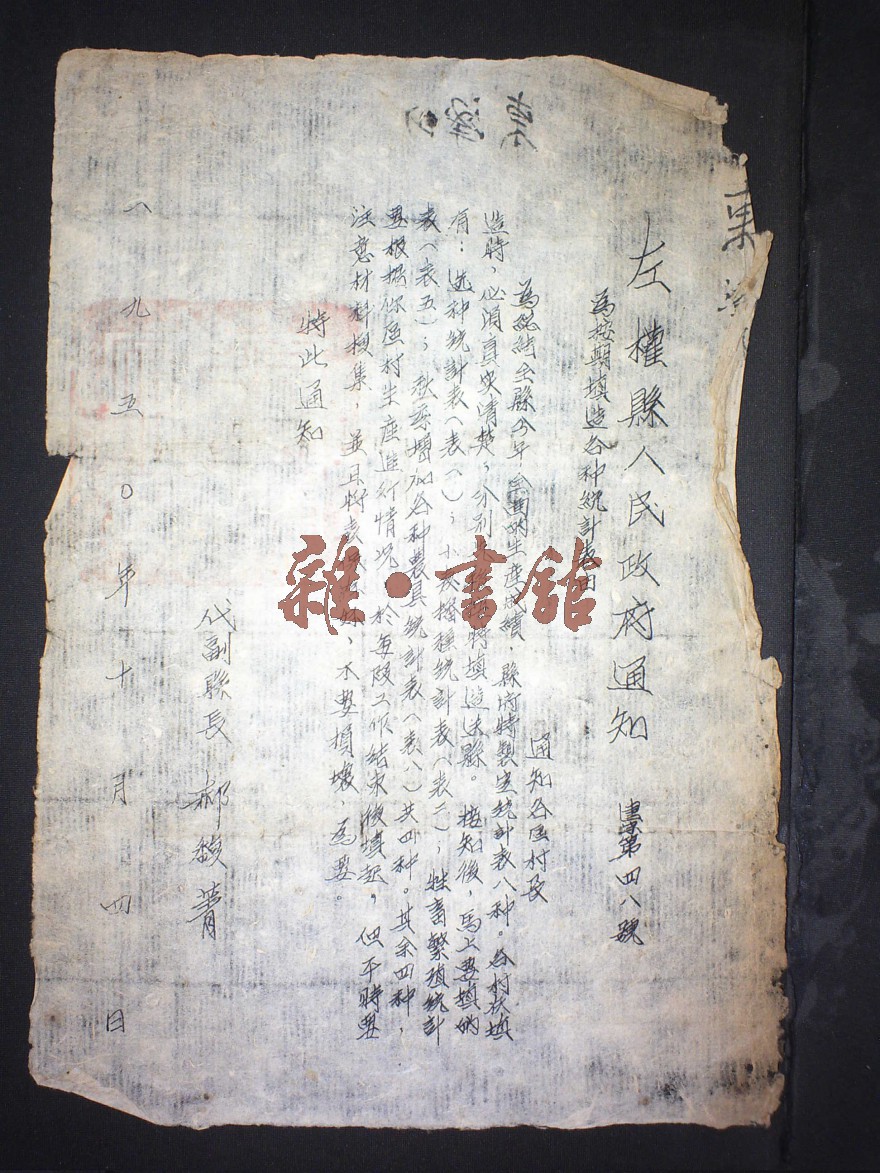 左權縣人民政府通知 建第四八號
為按期填造各种統計表由
通知各區村長
為總結全縣今年全面的生產成績，縣府特製定統計表八种。各村於填
造時，必須真实清楚，分別按時填造送縣。接知後，馬上要填的
有：选种統計表（表一）；小麦播種統計表（表二）；牲畜繁殖統計
表（表五）；秋季增加各种農具統計表（表八）共四种。其余四种，
要根据你區村生產進行情况，於每段工作結束後填起，但平時要
注意材料搜集，並且將表保存好，不要損壞，為要。
特此通知
代副縣長 郝
一九五〇年十月四日
雜·書舘